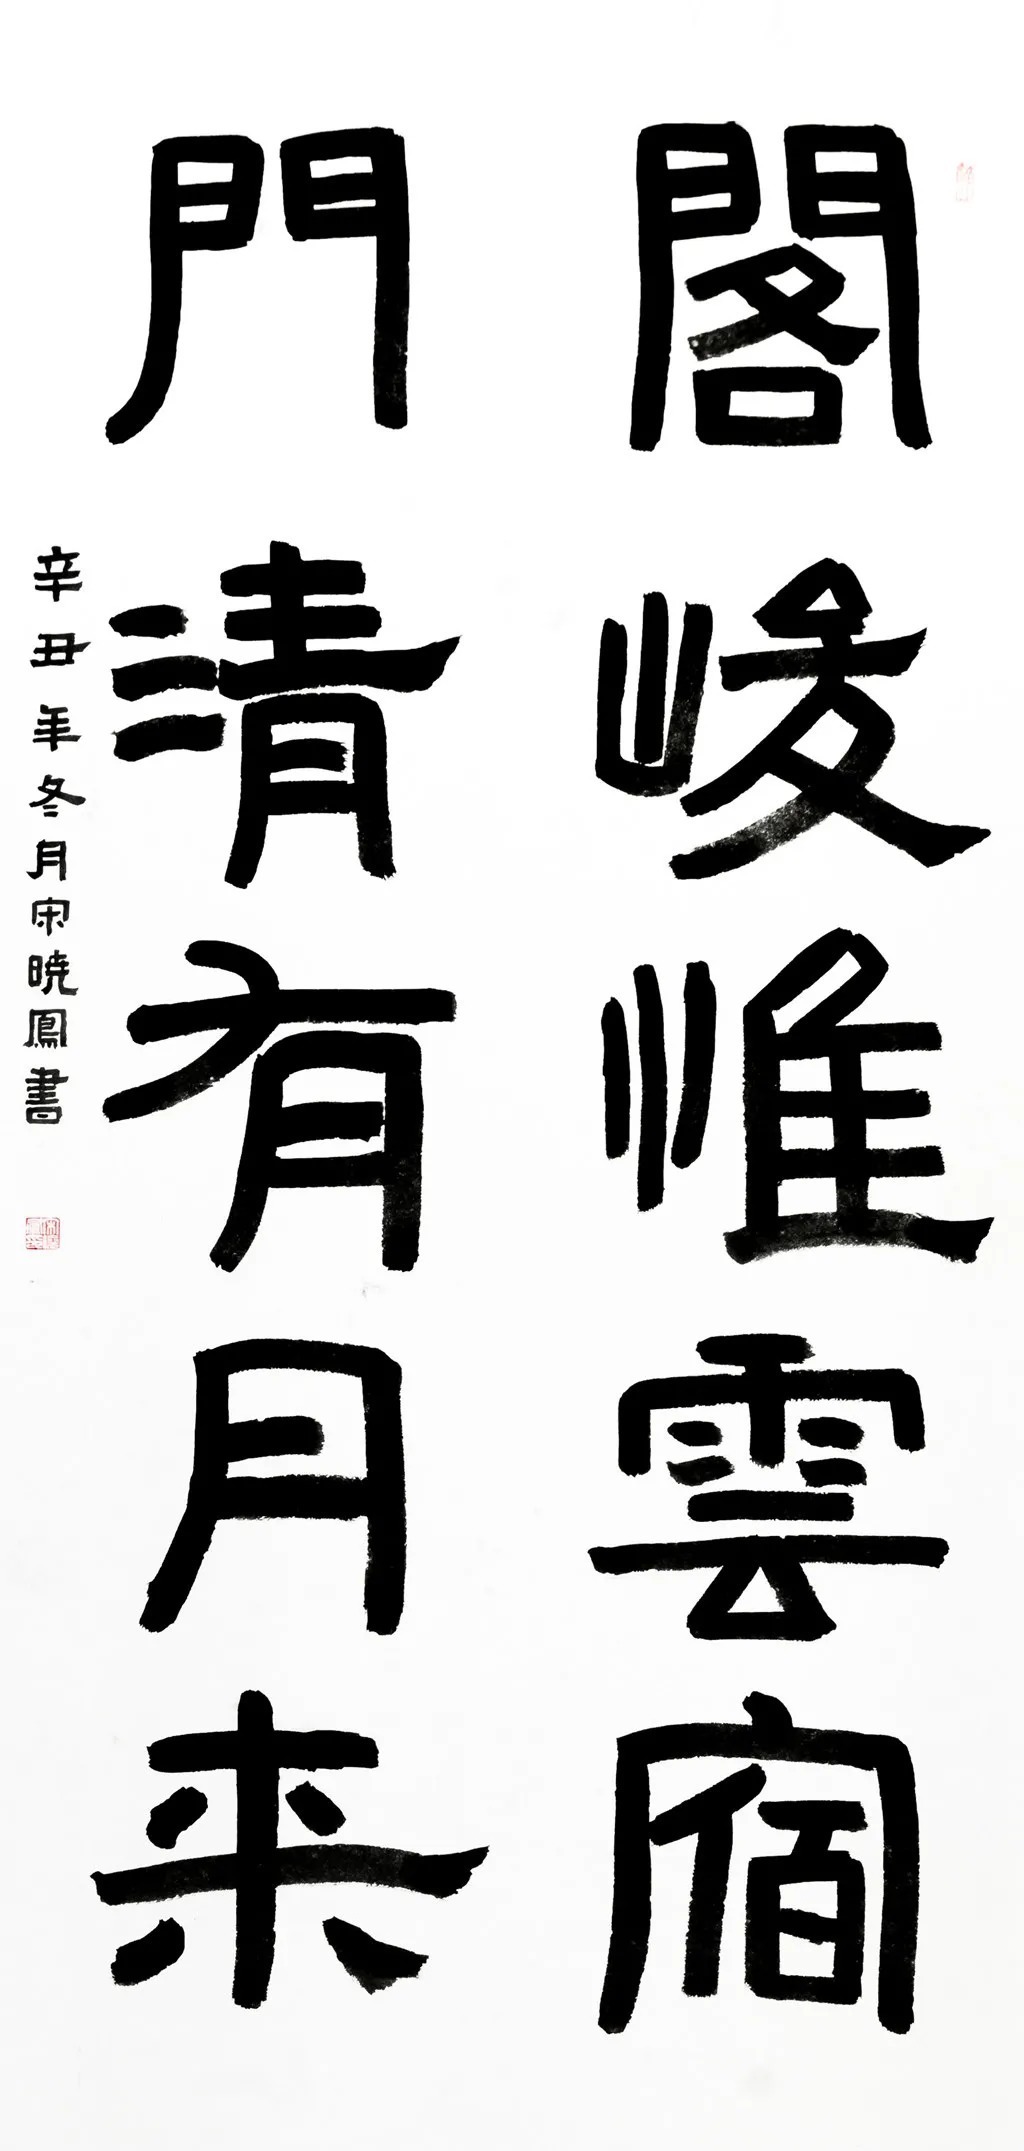 閣峻惟雲宿
門清有月来
辛丑年冬月宋晓鳳書